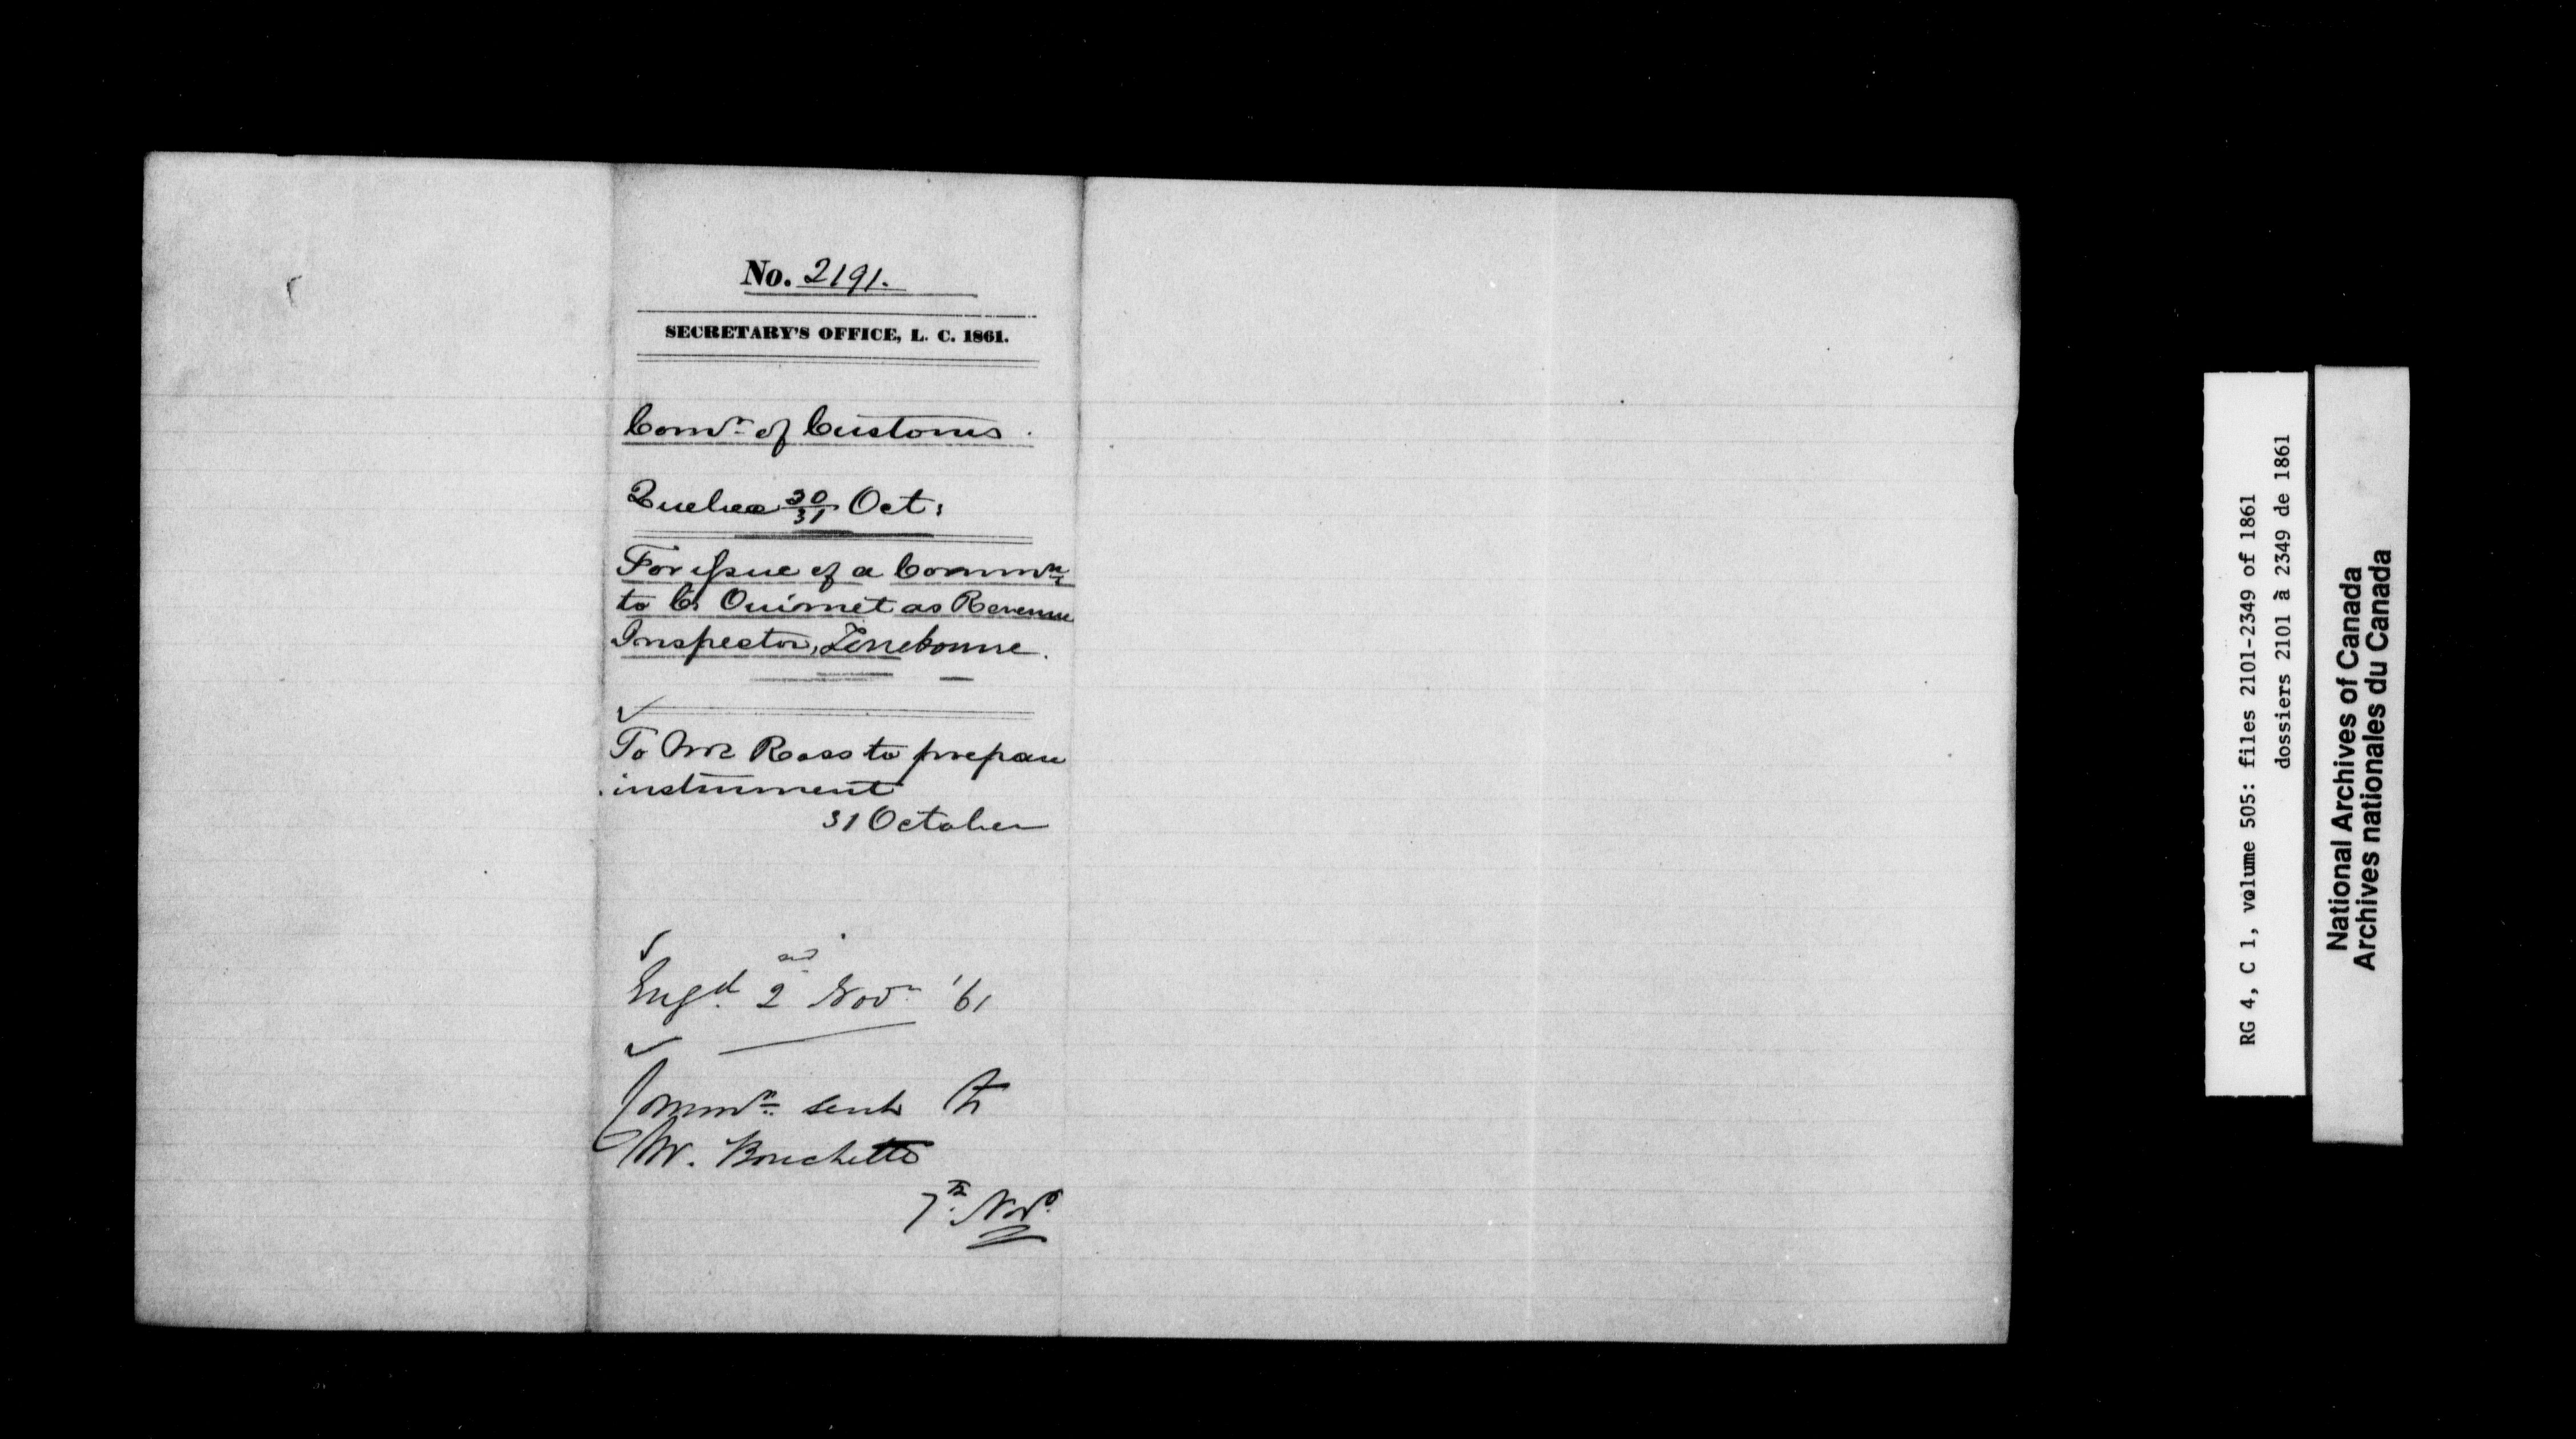 No. 2191.
SECRETARY'S OFFICE, L. C. 1861.
Comr of Customs.
Quebec 30/31 Oct:
For issue of a Commn
to C. Ouimet as Revenue
Inspector, Terrebonne.
To Mr Ross to prepare
instrument
31 October
Engd 2nd Novr '61
Commn sent to
Mr. Bouchette
7th Novr
RG 4, C 1, volume 505: files 2101-2349 of 1861
dossiers 2101 à 2349 de 1861
National Archives of Canada
Archives nationales du Canada